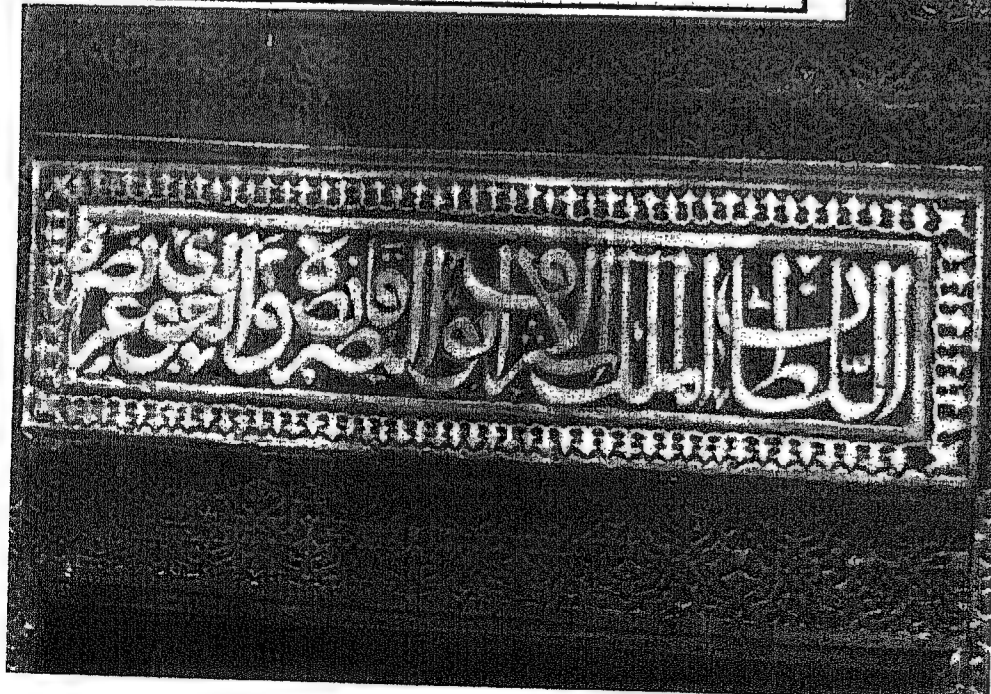 السلطان الملك الاشرف ابو النصر قانصوه الغورى عز نصره